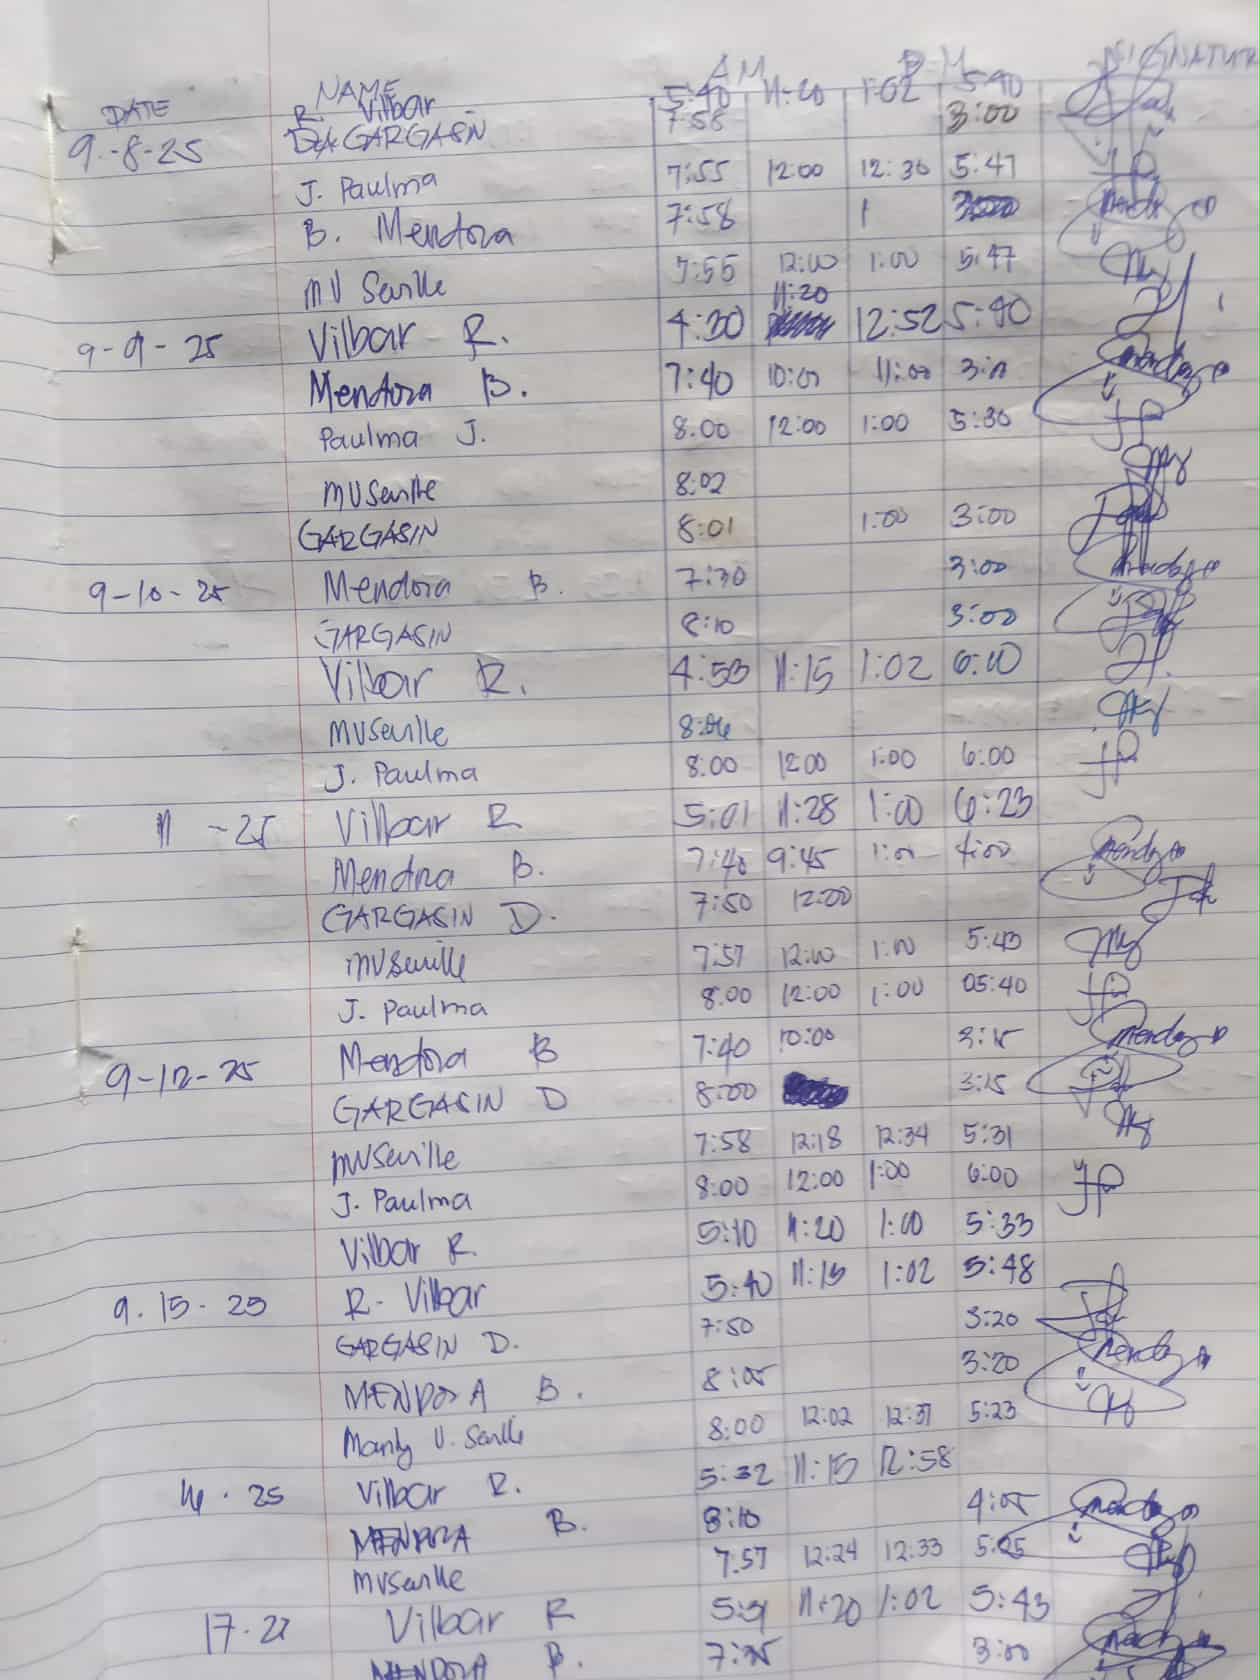 DATE NAME AM P-M SIGNATUR
R. Vilbar 5:40 11:20 1:02 5:40
9-8-25 GARGASIN 7:58 3:00
J. Paulma 7:55 12:00 12:30 5:47
B. Mendoza 7:58
MV Seville 7:55 12:00 1:00 5:47
11:20
9-9-25 Vilbar R. 4:30 12:52 5:40
Mendoza B. 7:40 10:00 11:00
Paulma J. 8:00 12:00 1:00 5:30
MVSeville 8:02
GARGASIN 8:01 1:00 3:00
9-10-25 Mendoza B. 7:30 3:00
GARGASIN 8:10 3:00
Vilbar R. 4:53 11:15 1:02 6:10
MVSeville 8:06
J. Paulma 8:00 1200 1:00 6:00
11 -25 Vilbar R 5:01 11:28 1:00 6:23
Mendoza B. 7:40 9:45 1:00 4:00
GARGASIN D. 7:50 12:00
MVSeville 7:57 12:00 1:00 5:43
J. Paulma 8:00 12:00 1:00 05:40
9-12-25 Mendoza B 7:40 10:00 3:15
GARGASIN D 8:00 3:15
MVSeville 7:58 12:18 12:34 5:31
J. Paulma 8:00 12:00 1:00 6:00
Vilbar R. 5:10 11:20 1:00 5:33
9.15-25 R. Vilbar 5:40 11:15 1:02 5:48
GARGASIN D. 7:50 3:20
MENDOZA B. 8:05 3:20
Manly V. Seville 8:00 12:02 12:31 5:23
25 Vilbar R. 5:32 11:15 12:58
MENDOZA B. 8:10 4:05
MVSeville 7:57 12:24 12:33 5:25
17. Vilbar R 5:31 11:20 1:02 5:43
MENDOZA B. 7:35 3:00